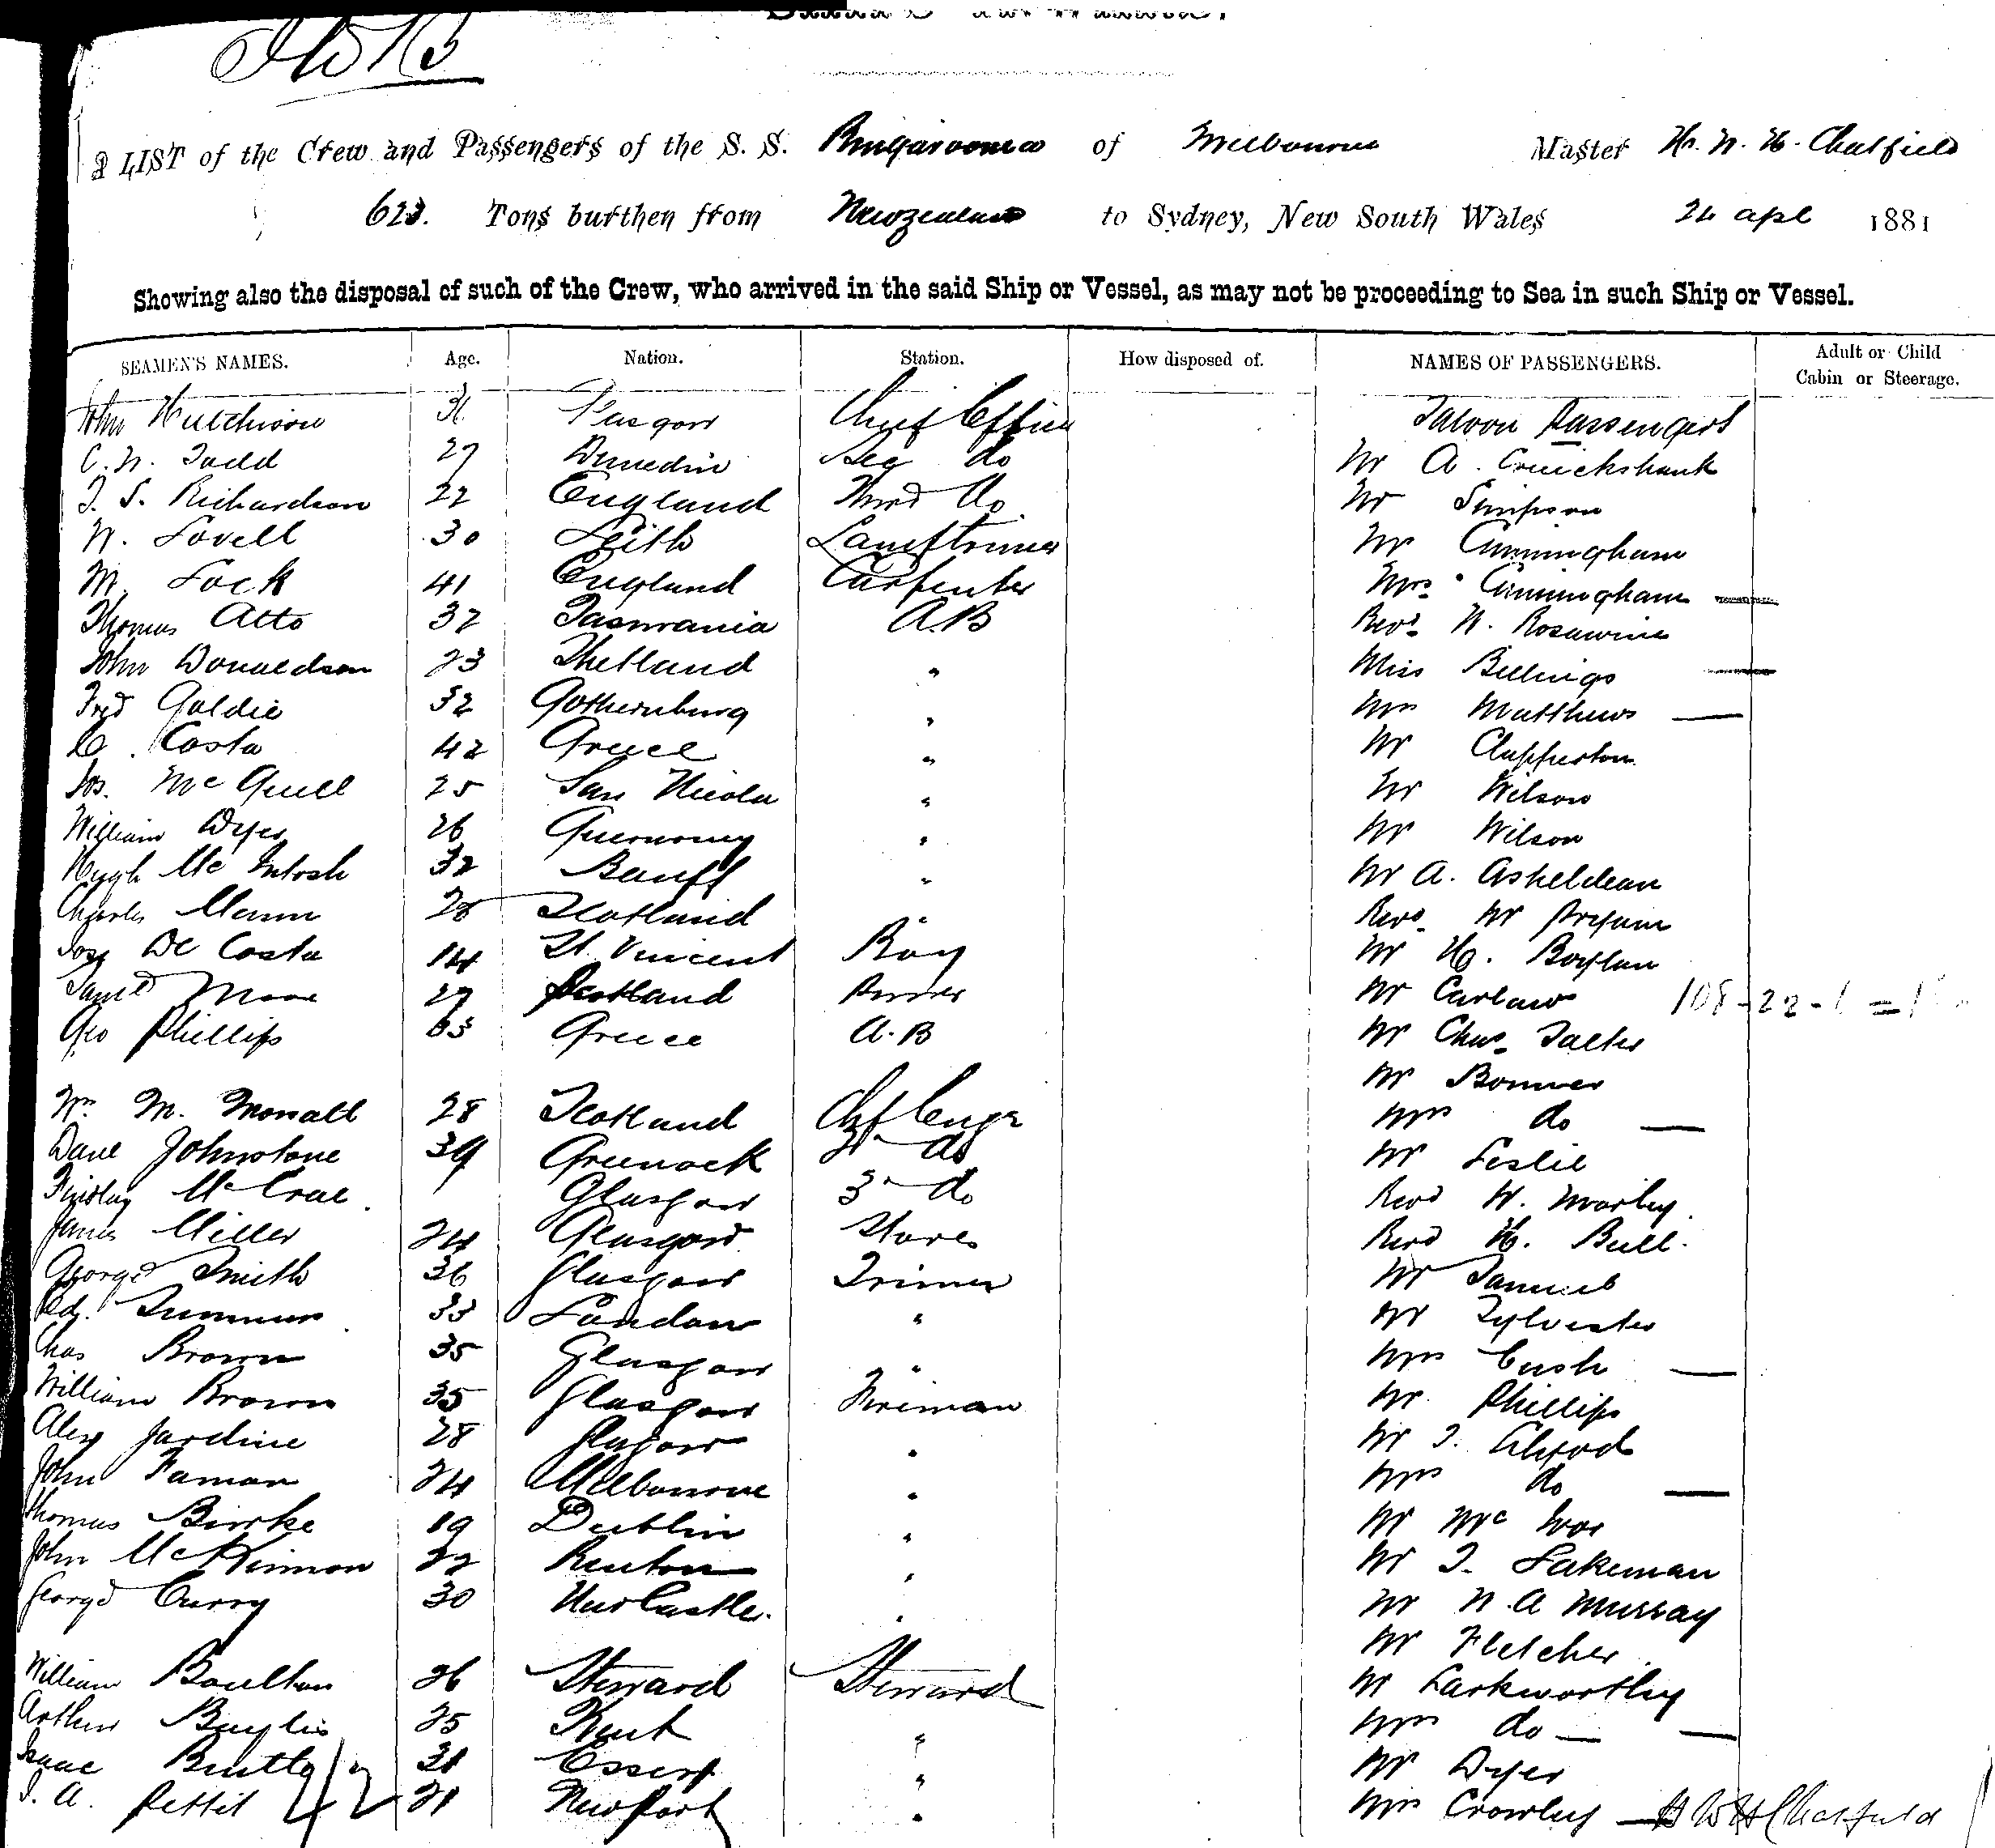 A LIST of the Crew and Passengers of the S. S. of Melbourne Master H. W. H. Chatfield
Tons burthen from New Zealand to Sydney, New South Wales 24 apl 1881
Showing also the disposal of such of the Crew, who arrived in the said Ship or Vessel, as may not be proceeding to Sea in such Ship or Vessel.
SEAMEN'S NAMES. Age. Nation. Station. How disposed of. NAMES OF PASSENGERS. Adult or Child Cabin or Steerage.
John Hutchison 31 Glasgow Chief Officer Saloon Passengers
C. W. Todd 27 Dunedin Sec do Mr A. Cruickshank
T. S. Richardson 22 England Third do Mr Simpson
W. Lovell 30 Leith Lamptrimer Mr Cunningham
M. Lock 41 England Carpenter Mrs Cunningham —
Thomas Atto 32 Tasmania A.B Revd W.
John Donaldson 23 Shetland " Miss Billings —
Fred Goldie 32 Gothenburg " Mrs Matthews —
C. Costa 42 Greece " Mr Clapperton
Jos. Mc Quill 25 San Nicola " Mr Wilson
William Dyer 26 Guernsey " Mr Wilson
Hugh Mc Intosh 32 Banff " Mr A.
Charles Mann 28 Scotland " Revd Mr
De Costa 14 St. Vincent Boy Mr H. Boylan
Saml Moore 27 Scotland Mr Carlaw 108 - 22 - 1 =
Geo Phillips 63 Greece A.B Mr Chas. Salter
Mr Bonner
Wm. M. 28 Scotland Chf Engr Mrs do —
Dave Johnstone 39 Greenock 2nd do Mr Leslie
Findlay McCrae Glasgow 3 do Revd W. Morley
James Miller 24 Glasgow Stores Revd H. Bull.
George Smith 36 Glasgow Trimer Mr Samuel
33 London " Mr Sylvester
Chas Brown 35 Glasgow " Mrs Cush —
William Brown 35 Glasgow Fireman Mr Phillips
Alex Jardine 28 Glasgow " Mr T.
John 24 Melbourne " Mrs do —
Thomas Birke 19 Dublin " Mr Mc
John McKinnon 22 Renton " Mr T. Lakeman
George Curry 30 New Castle. " Mr W. A Murray
Mr Fletcher
William Boulton 26 Steward Steward Mr Larkworthy
Arthur Baylis 25 Kent " Mrs do — —
Isaac 31 Essex " Mr Dyer
T. A. Pettit 21 Newport " Mrs Crowley — H W H Chatfield